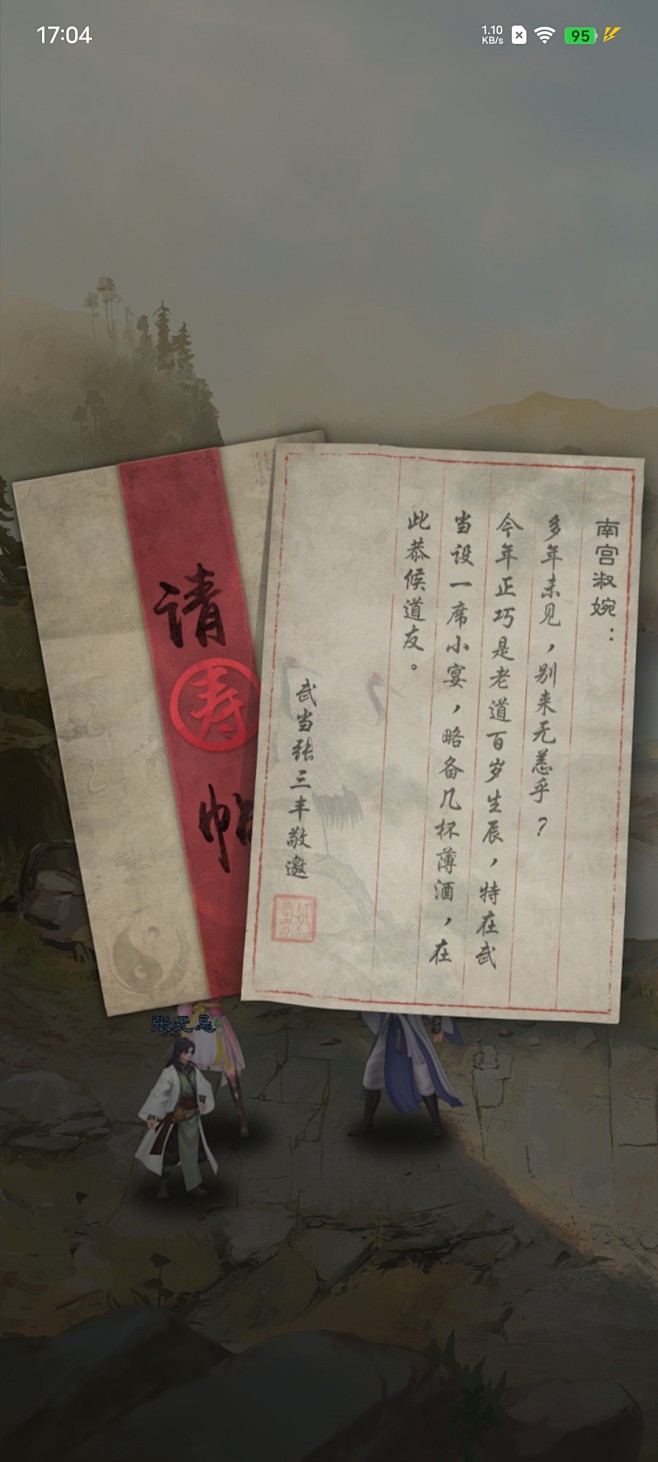 17:04
1.10
KB/s
95
请
寿
帖
南宫淑婉：
多年未见，别来无恙乎？
今年正巧是老道百岁生辰，特在武
当设一席小宴，略备几杯薄酒，在
此恭候道友。
武当张三丰敬邀
张无忌